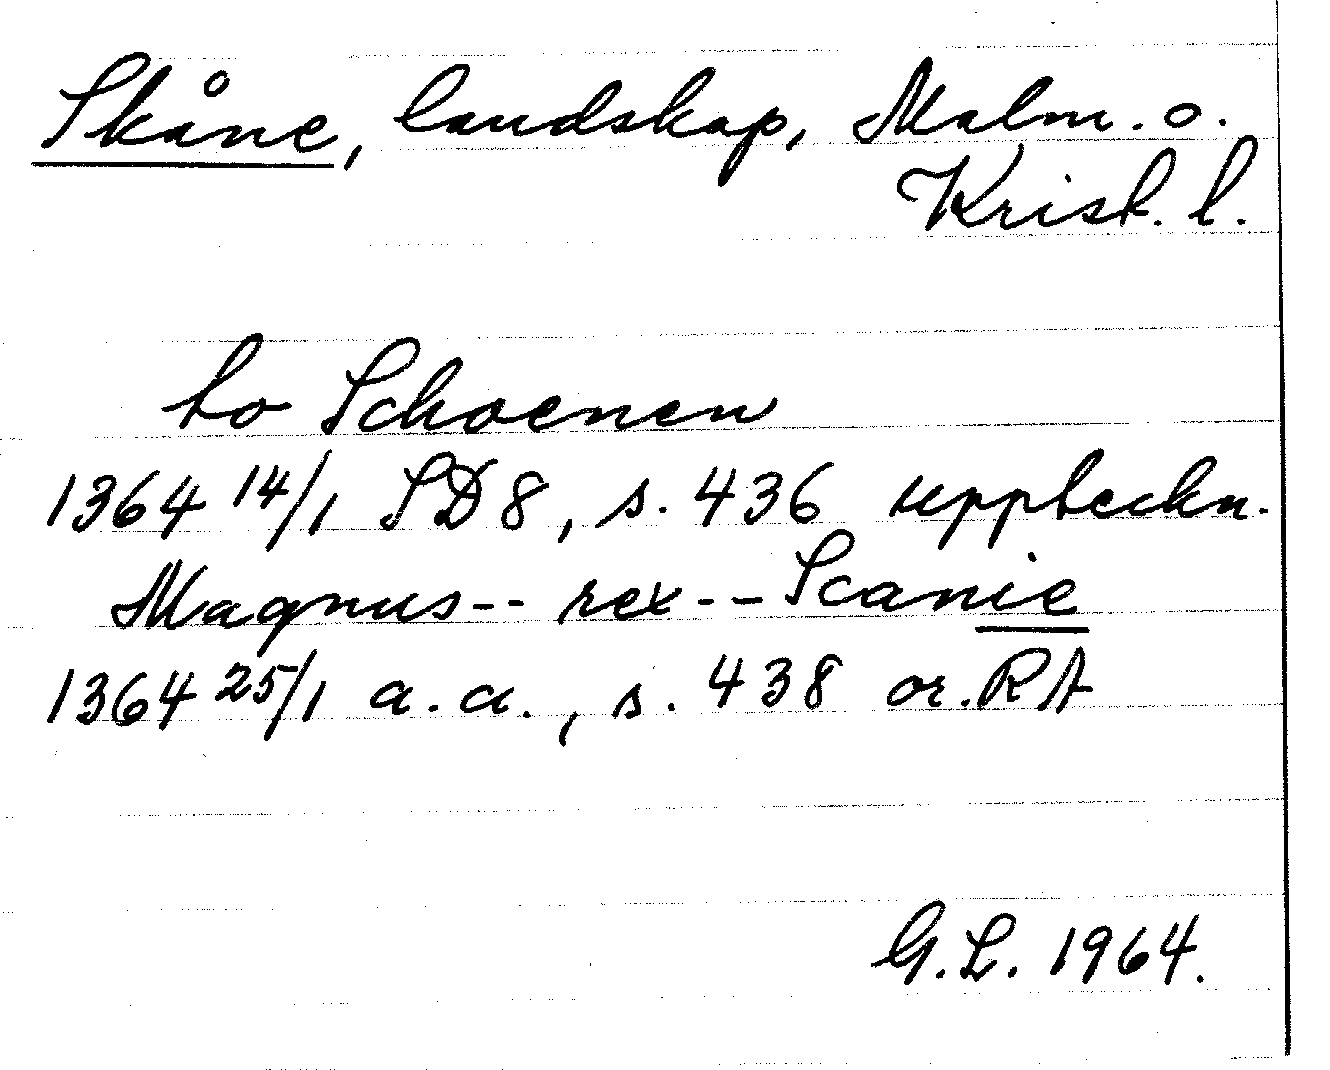 Skåne, landskap, Malm. o.
Krist. l.
to Schoenen
1364 14/1 SD 8, s. 436 uppteckn.
Magnus-- rex-- Scanie
1364 25/1 a.a., s. 438 or. RA
G.L. 1964.